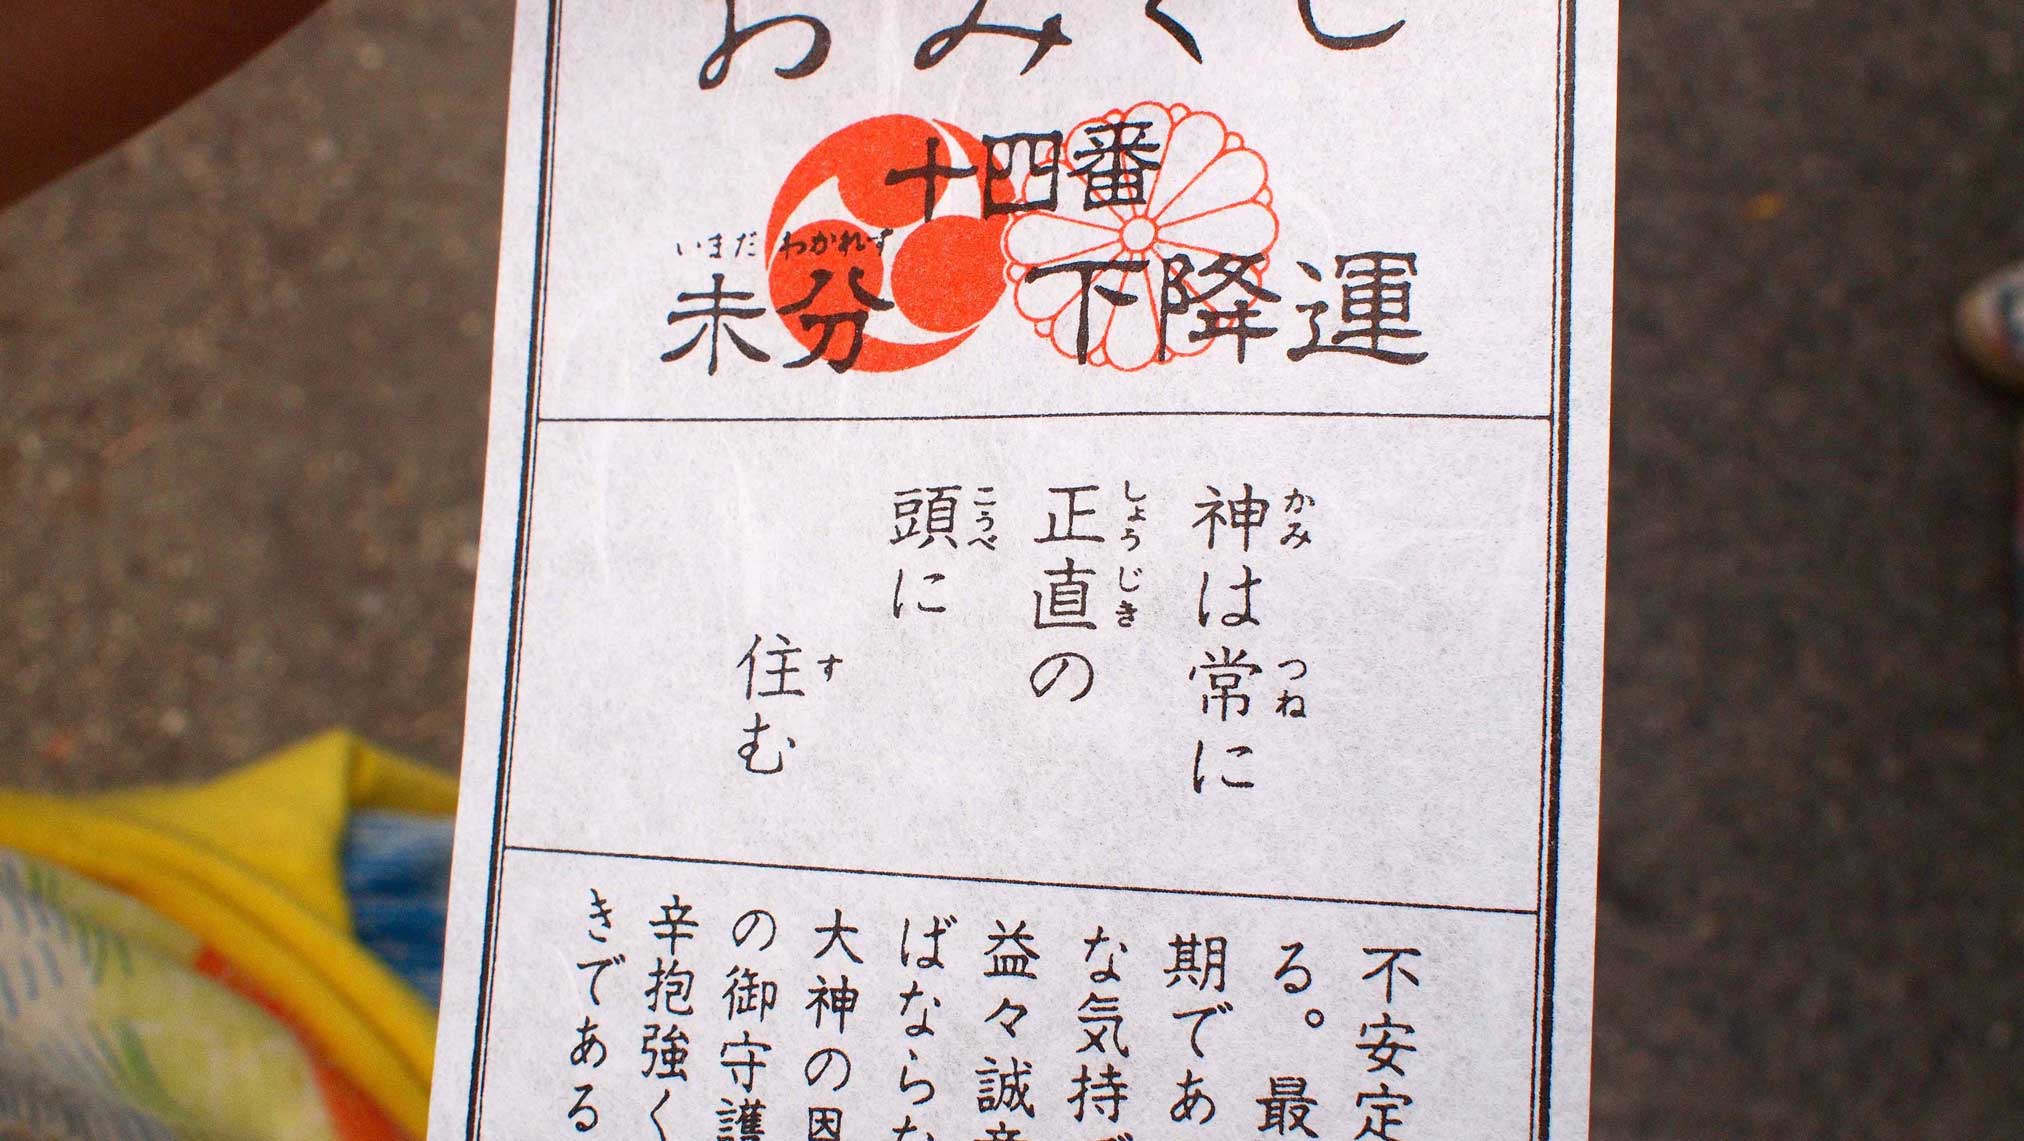 おみくじ
十四番
いまだ わかれず
未分 下降運
神は常に
かみ つね
正直の
しょうじき
頭に
こうべ
住む
す
不安定
る。最
期であ
な気持
益々誠
ばならな
大神の恩
の御守護
辛抱強く
きである